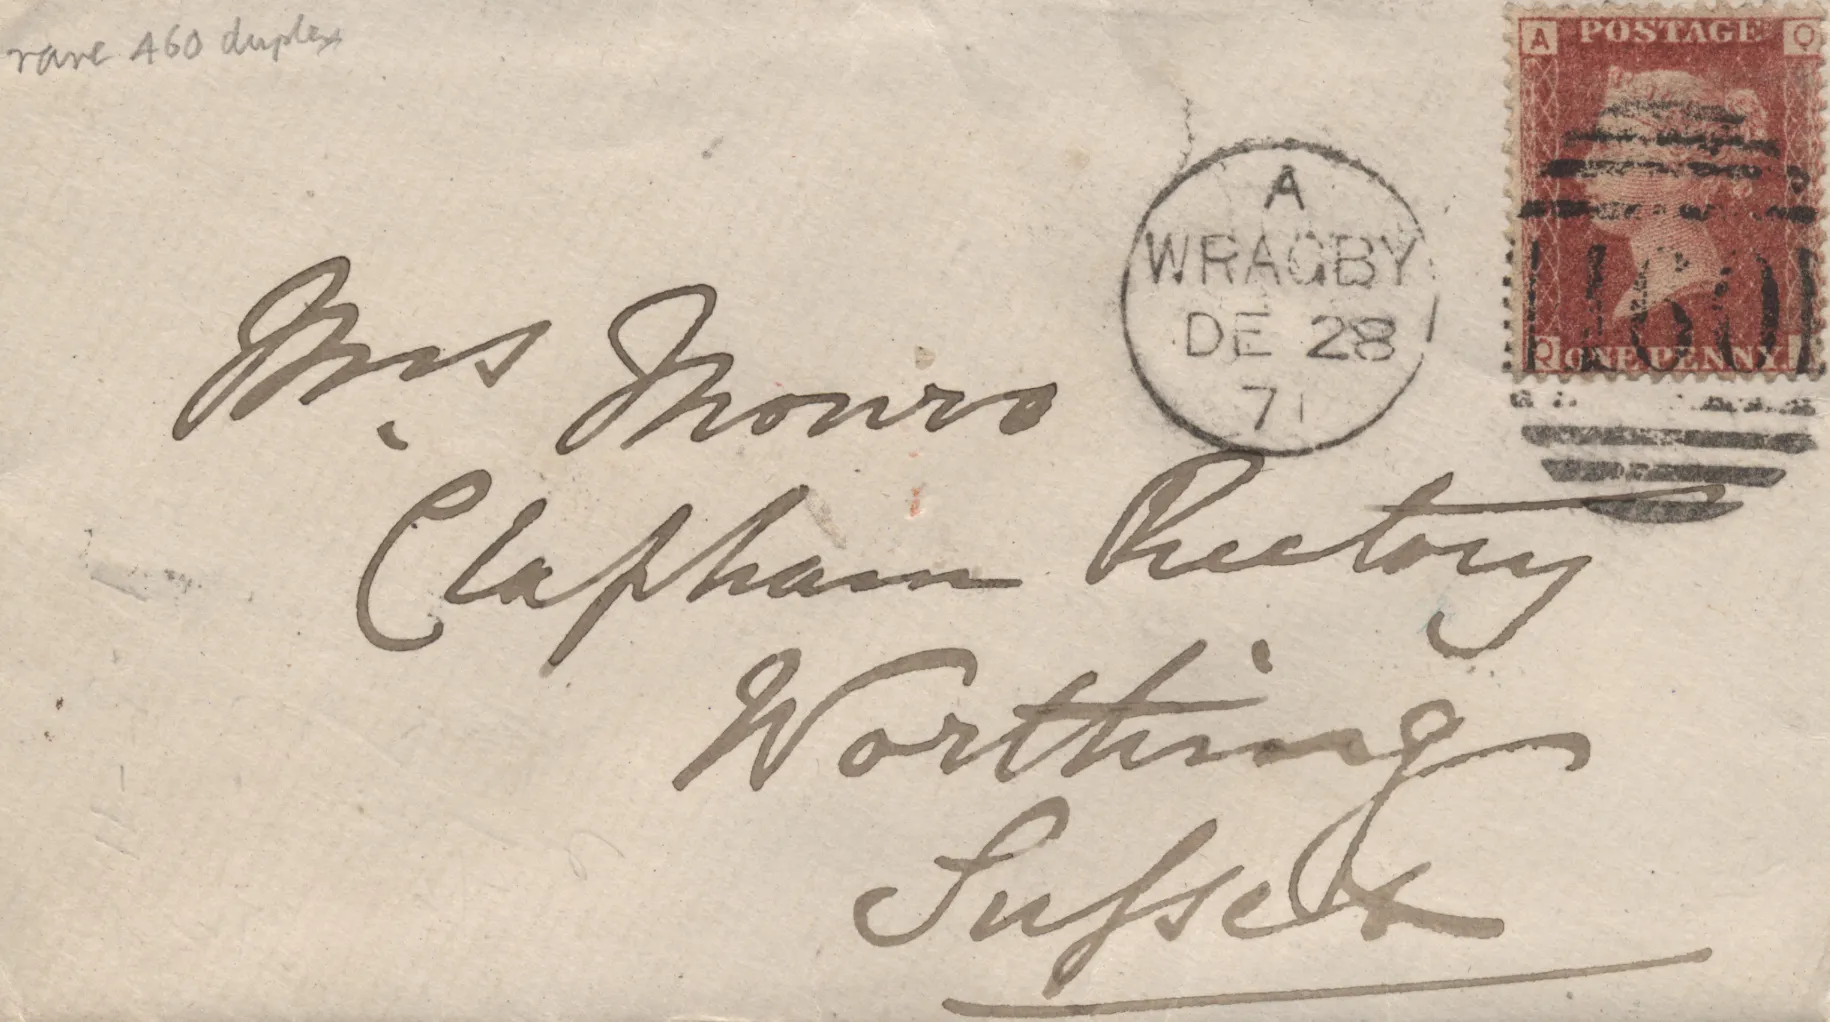 rare A60 duplex
A POSTAGE Q
A
WRAGBY
DE 28
71
A60
Q ONE PENNY
Mrs Monro
Clapham Rectory
Worthing
Sussex